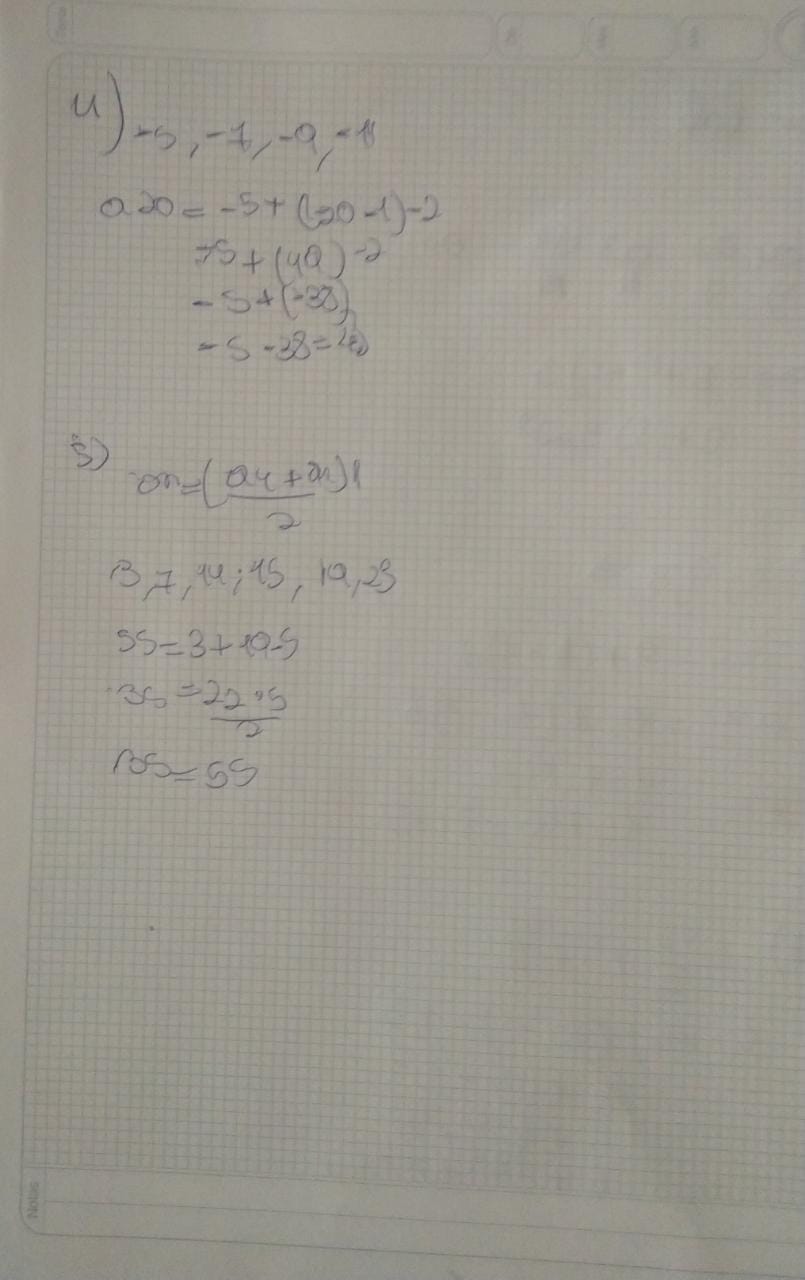 4)
-5, -7, -9, -11
a20 = -5 + (20-1)-2
-5 + (19) -2
-5 + (-38)
-5 - 38 =
5)
(a1 + an)
2
3, 7, 11; 15, 19, 23
S5 = 3 + 19.5
S5 = 22.5
2
S5 = 55
Notas